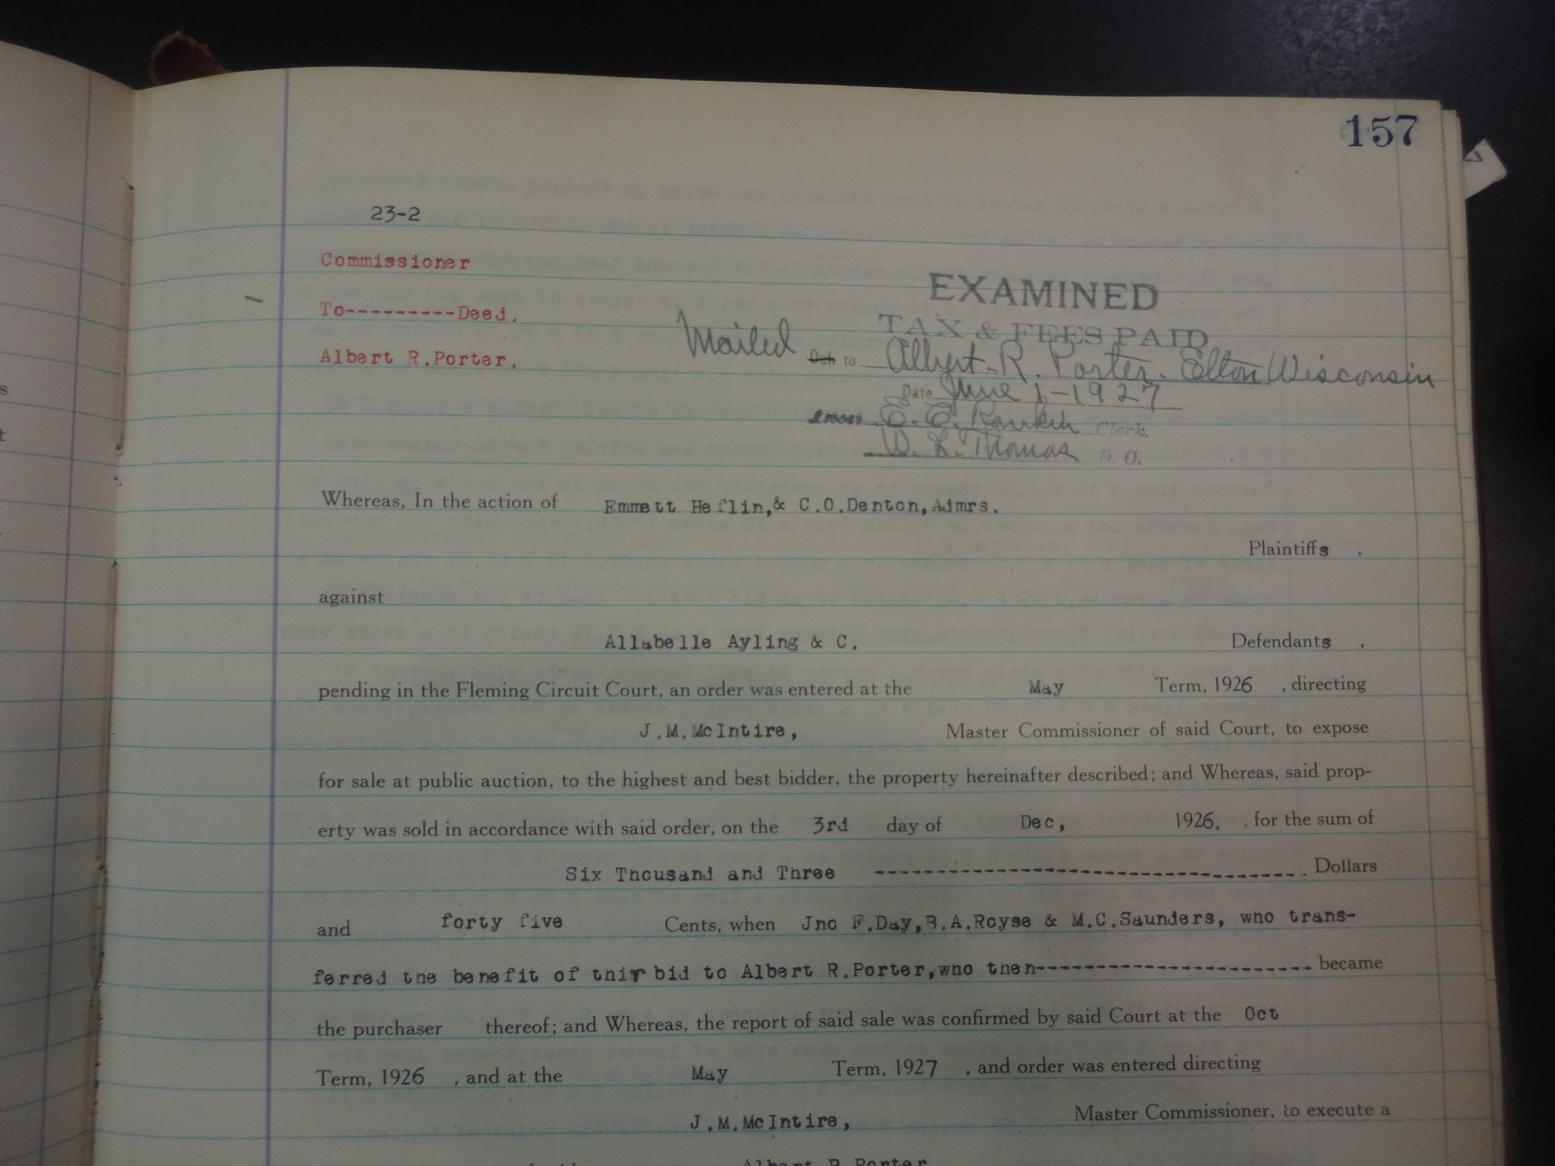 157
23-2
Commissioner
To---------Deed.
Albert R.Porter.
EXAMINED
TAX & FEES PAID
Mailed to Albert R. Porter. Elton Wisconsin
Date June 1-1927
E. E. Rankin Clerk.
W. L. Thomas D. C.
Whereas, In the action of Emmett Heflin,& C.O.Denton,Admrs.
Plaintiffs ,
against
Allabelle Ayling & C. Defendants ,
pending in the Fleming Circuit Court, an order was entered at the May Term, 1926 , directing
J.M.McIntire, Master Commissioner of said Court, to expose
for sale at public auction, to the highest and best bidder, the property hereinafter described; and Whereas, said prop-
erty was sold in accordance with said order, on the 3rd day of Dec, 1926. , for the sum of
Six Thousand and Three ------------------------------------ Dollars
and forty five Cents, when Jno F.Day,B.A.Royse & M.C.Saunders, who trans-
ferred the benefit of thir bid to Albert R.Porter,who then------------------------ became
the purchaser thereof; and Whereas, the report of said sale was confirmed by said Court at the Oct
Term, 1926 , and at the May Term, 1927 , and order was entered directing
J.M.McIntire, Master Commissioner, to execute a
Albert R Porter